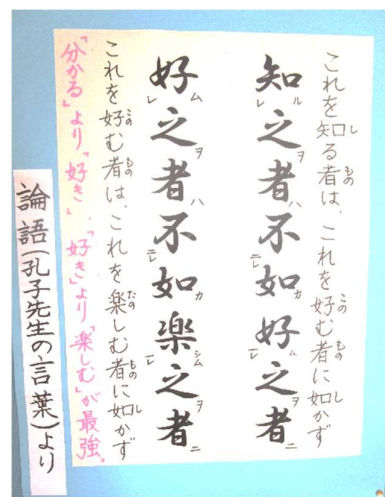 これを知る者は、これを好む者に如かず
知之者不如好之者
好之者不如楽之者
これを好む者は、これを楽しむ者に如かず
「分かる」より「好き」、「好き」より「楽しむ」が最強。
論語(孔子先生の言葉)より